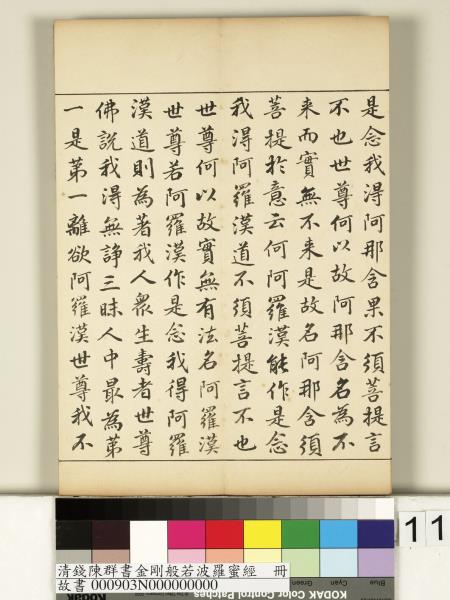 是念我得阿那含果不須菩提言
不也世尊何以故阿那含名為不
来而實無不来是故名阿那含須
菩提於意云何阿羅漢能作是念
我得阿羅漢道不須菩提言不也
世尊何以故實無有法名阿羅漢
世尊若阿羅漢作是念我得阿羅
漢道則為著我人衆生壽者世尊
佛說我得無諍三昧人中最為第
一是第一離欲阿羅漢世尊我不
11
清錢陳群書金剛般若波羅蜜經 冊
故書 000903N000000000
Blue Cyan Green
KODAK Color Control Patches